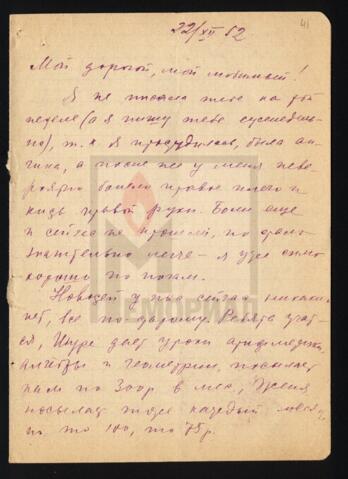 41
22/XII 52
Мой дорогой, мой любимый!
Я не писала тебе на той
неделе (а я пишу тебе еженедель-
но), т.к. я простудилась, была ан-
гина, а после нее у меня неве-
роятно болело правое плечо и
кисть правой руки. Боли еще
и сейчас не прошли, но
значительно легче - я уже сплю
хорошо по ночам.
МЕМОРИАЛ
Новостей у нас сейчас никаких
нет, все по-старому. Ребята учат-
ся, Шура дает уроки арифметики,
алгебры и геометрии, посылает
нам по 300р в мес, Женя
посылает тоже каждый месяц
то 100, то 75р.